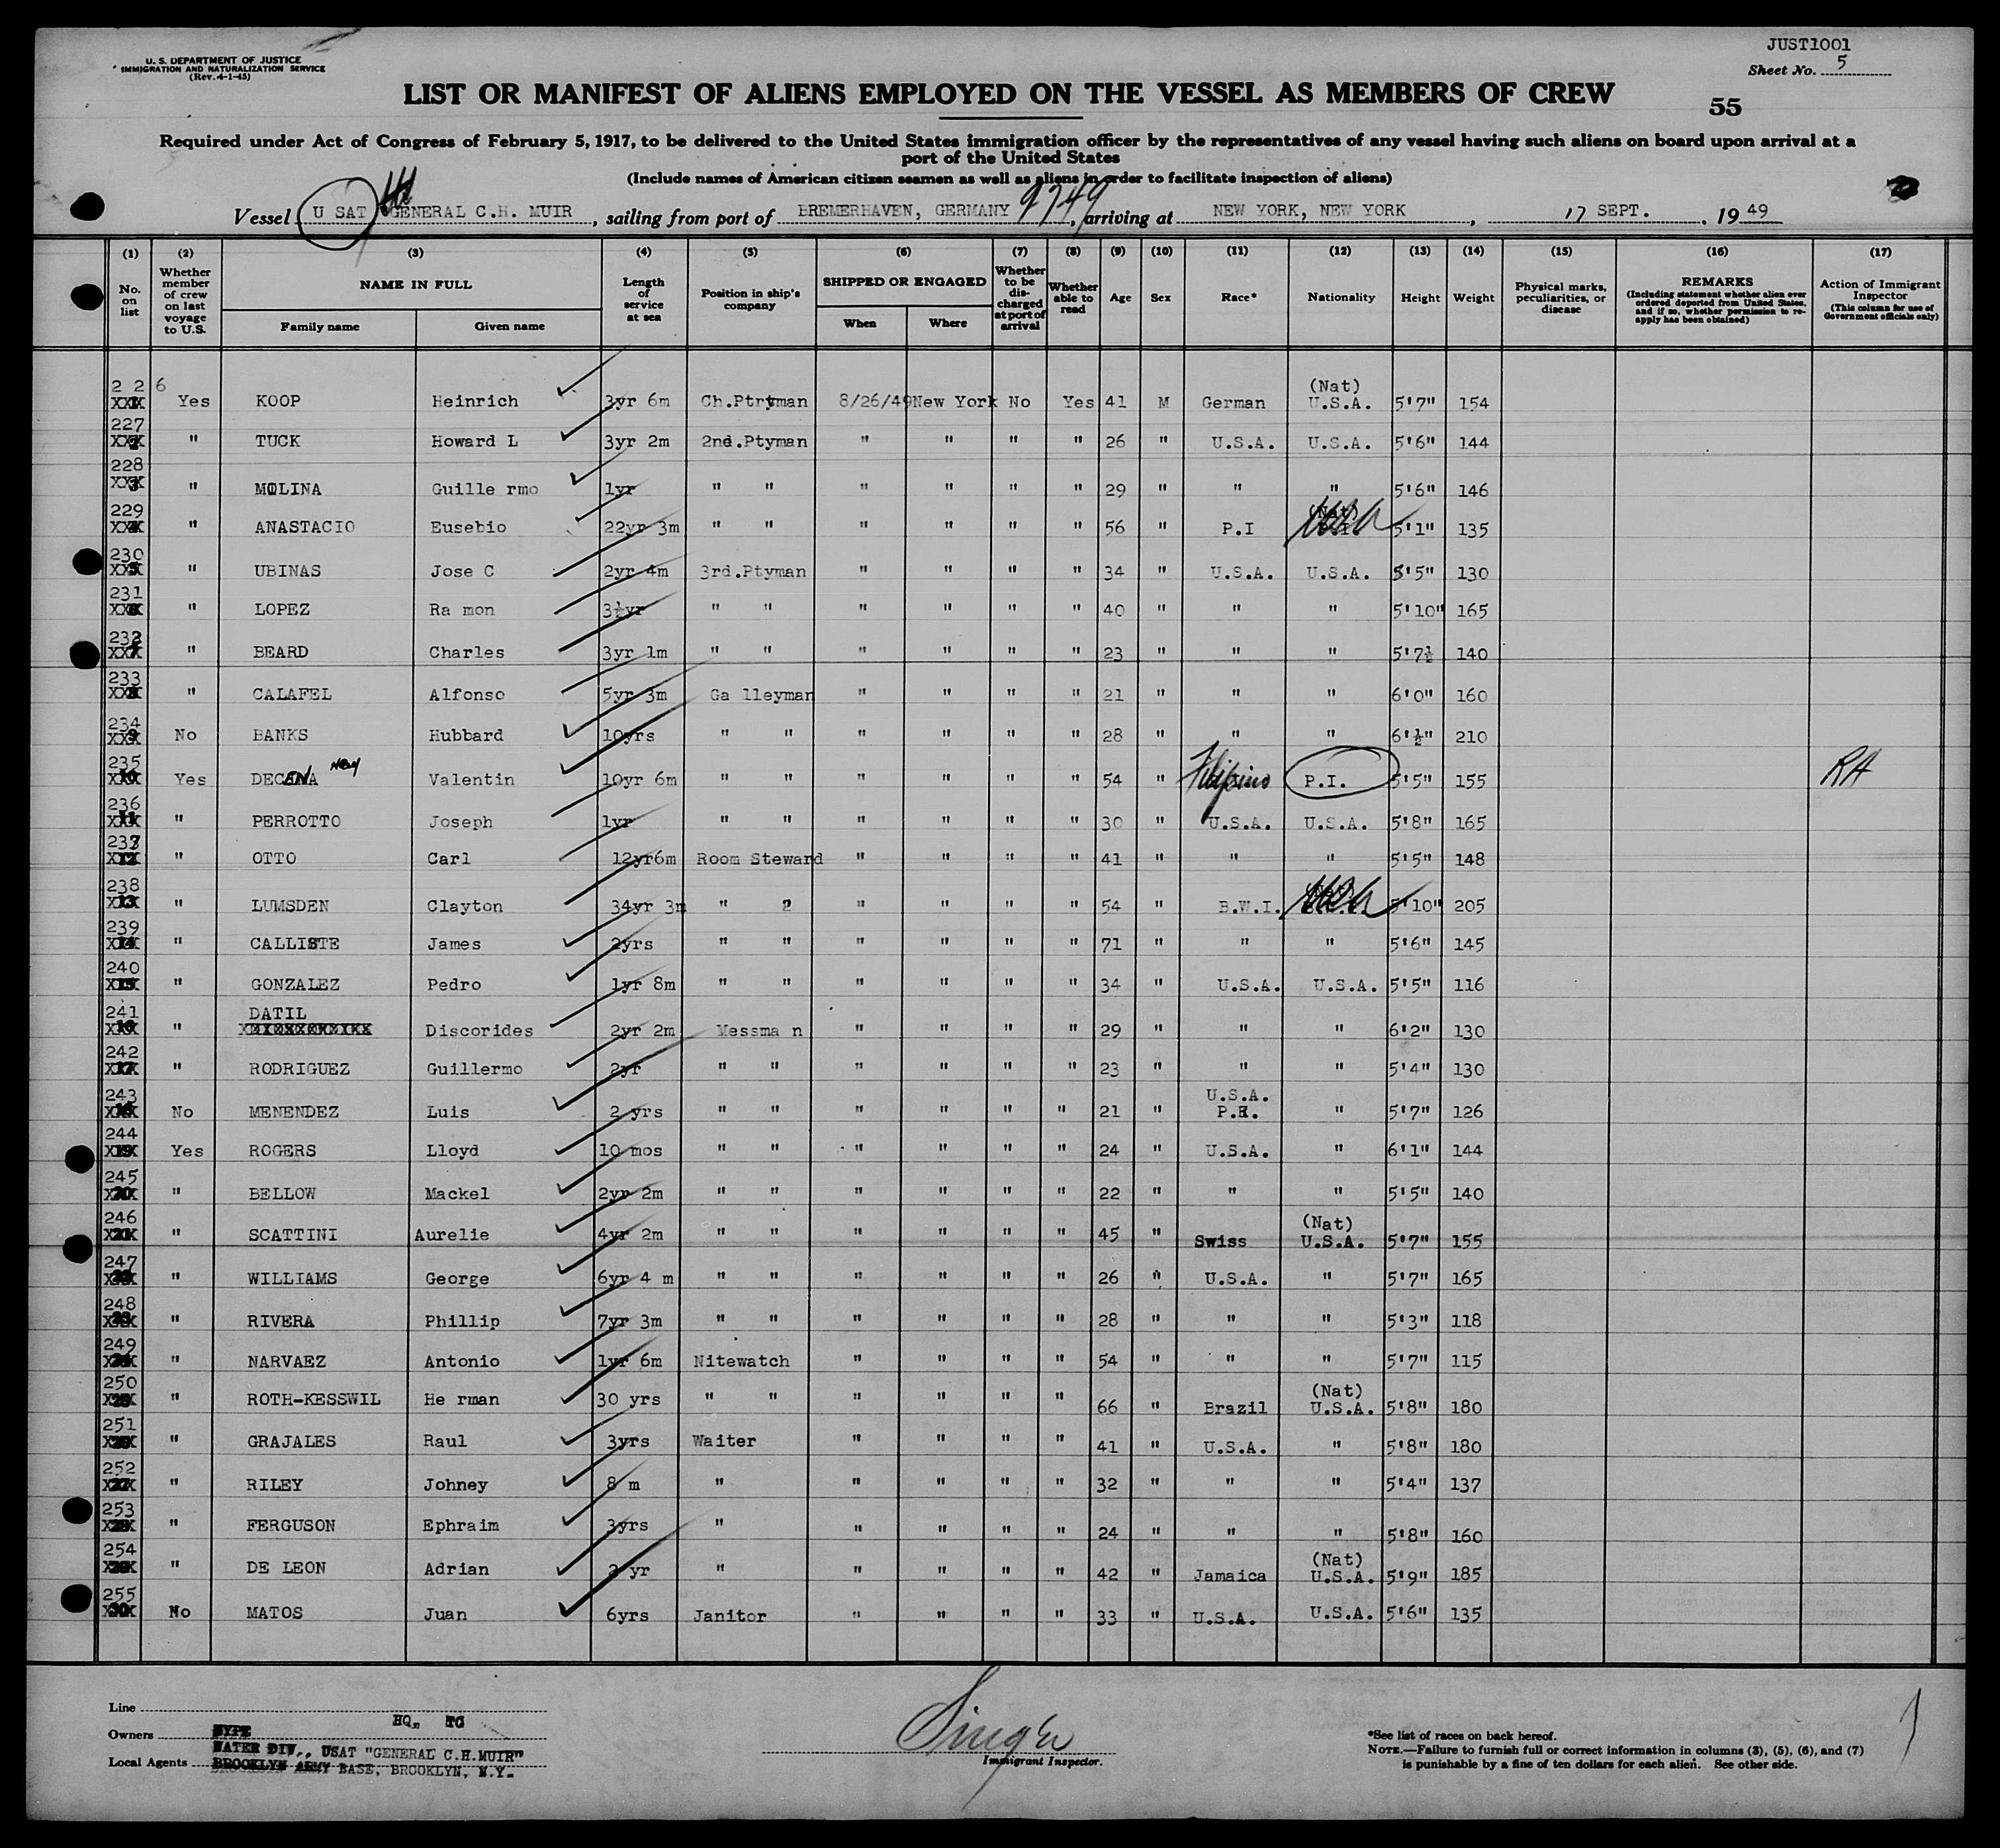 JUST1001
U. S. DEPARTMENT OF JUSTICE
IMMIGRATION AND NATURALIZATION SERVICE
(Rev. 4-1-45)
Sheet No. 5
LIST OR MANIFEST OF ALIENS EMPLOYED ON THE VESSEL AS MEMBERS OF CREW
55
Required under Act of Congress of February 5, 1917, to be delivered to the United States immigration officer by the representatives of any vessel having such aliens on board upon arrival at a
port of the United States
(Include names of American citizen seamen as well as aliens in order to facilitate inspection of aliens)
9749
Vessel U SAT GENERAL C.H. MUIR, sailing from port of BREMERHAVEN, GERMANY, arriving at NEW YORK, NEW YORK, 17 SEPT., 1949
(1) (2) (3) (4) (5) (6) (7) (8) (9) (10) (11) (12) (13) (14) (15) (16) (17)
No. on list Whether member of crew on last voyage to U.S. NAME IN FULL Family name Given name Length of service at sea Position in ship's company SHIPPED OR ENGAGED When Where Whether to be discharged at port of arrival Whether able to read Age Sex Race* Nationality Height Weight Physical marks, peculiarities, or disease REMARKS (Including statement whether alien ever ordered deported from United States, and if so, whether permission to reapply has been obtained) Action of Immigrant Inspector (This column for use of Government officials only)
2 2 6 Yes KOOP Heinrich 3yr 6m Ch.Ptryman 8/26/49 New York No Yes 41 M German (Nat) U.S.A. 5'7" 154
227 " TUCK Howard L 3yr 2m 2nd.Ptyman " " " " 26 " U.S.A. U.S.A. 5'6" 144
228 " MOLINA Guille rmo 1yr " " " " " " 29 " " " 5'6" 146
229 " ANASTACIO Eusebio 22yr 3m " " " " " " 56 " P.I (Nat) USA 5'1" 135
230 " UBINAS Jose C 2yr 4m 3rd.Ptyman " " " " 34 " U.S.A. U.S.A. 5'5" 130
231 " LOPEZ Ra mon 3½yr " " " " " " 40 " " " 5'10" 165
232 " BEARD Charles 3yr 1m " " " " " " 23 " " " 5'7½ 140
233 " CALAFEL Alfonso 5yr 3m Ga lleyman " " " " 21 " " " 6'0" 160
234 No BANKS Hubbard 10yrs " " " " " " 28 " " " 6'½" 210
235 Yes DECENA Valentin 10yr 6m " " " " " " 54 " Filipino P.I. 5'5" 155 RH
236 " PERROTTO Joseph 1yr " " " " " " 30 " U.S.A. U.S.A. 5'8" 165
237 " OTTO Carl 12yr6m Room Steward " " " " 41 " " " 5'5" 148
238 " LUMSDEN Clayton 34yr 3m " 2 " " " " 54 " B.W.I. USA 5'10" 205
239 " CALLISTE James 2yrs " " " " " " 71 " " " 5'6" 145
240 " GONZALEZ Pedro 1yr 8m " " " " " " 34 " U.S.A. U.S.A. 5'5" 116
241 " DATIL Discorides 2yr 2m Messma n " " " " 29 " " " 6'2" 130
242 " RODRIGUEZ Guillermo 2yr " " " " " " 23 " " " 5'4" 130
243 No MENENDEZ Luis 2 yrs " " " " " " 21 " U.S.A. P.R. " 5'7" 126
244 Yes ROGERS Lloyd 10 mos " " " " " " 24 " U.S.A. " 6'1" 144
245 " BELLOW Mackel 2yr 2m " " " " " " 22 " " " 5'5" 140
246 " SCATTINI Aurelie 4yr 2m " " " " " " 45 " Swiss (Nat) U.S.A. 5'7" 155
247 " WILLIAMS George 6yr 4 m " " " " " " 26 " U.S.A. " 5'7" 165
248 " RIVERA Phillip 7yr 3m " " " " " " 28 " " " 5'3" 118
249 " NARVAEZ Antonio 1yr 6m Nitewatch " " " " 54 " " " 5'7" 115
250 " ROTH-KESSWIL He rman 30 yrs " " " " " " 66 " Brazil (Nat) U.S.A. 5'8" 180
251 " GRAJALES Raul 3yrs Waiter " " " " 41 " U.S.A. " 5'8" 180
252 " RILEY Johney 8 m " " " " " 32 " " " 5'4" 137
253 " FERGUSON Ephraim 3yrs " " " " " 24 " " " 5'8" 160
254 " DE LEON Adrian yr " " " " " 42 " Jamaica (Nat) U.S.A. 5'9" 185
255 No MATOS Juan 6yrs Janitor " " " " 33 " U.S.A. U.S.A. 5'6" 135
Line
Owners NYPE HQ. TC
WATER DIV., USAT "GENERAL C.H.MUIR"
Local Agents BROOKLYN ARMY BASE, BROOKLYN, N.Y.
Immigrant Inspector.
*See list of races on back hereof.
NOTE.—Failure to furnish full or correct information in columns (3), (5), (6), and (7)
is punishable by a fine of ten dollars for each alien. See other side.